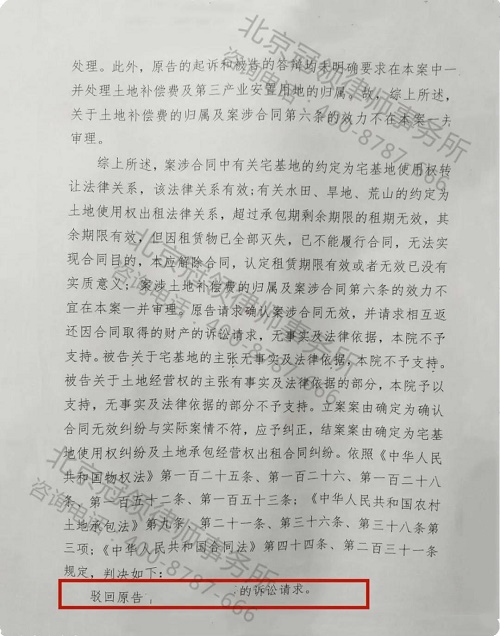 处理。此外，原告的起诉和被告的答辩均未明确要求在本案中一
并处理土地补偿费及第三产业安置用地的归属。故，综上所述，
关于土地补偿费的归属及案涉合同第六条的效力不在本案一并
审理。
综上所述，案涉合同中有关宅基地的约定为宅基地使用权转
让法律关系，该法律关系有效；有关水田、旱地、荒山的约定为
土地使用权出租法律关系，超过承包期剩余期限的租期无效，其
余期限有效，但因租赁物已全部灭失，已不能履行合同，无法实
现合同目的，本应解除合同，认定租赁期限有效或者无效已没有
实质意义；案涉土地补偿费的归属及案涉合同第六条的效力不
宜在本案一并审理。原告请求确认案涉合同无效，并请求相互返
还因合同取得的财产的诉讼请求，无事实及法律依据，本院不予
支持。被告关于宅基地的主张无事实及法律依据，本院不予支持。
被告关于土地经营权的主张有事实及法律依据的部分，本院予以
支持，无事实及法律依据的部分不予支持。立案案由确定为确认
合同无效纠纷与实际案情不符，应予纠正，结案案由确定为宅基
地使用权纠纷及土地承包经营权出租合同纠纷。依照《中华人民
共和国物权法》第一百二十五条、第一百二十六、第一百二十八
条、第一百五十二条、第一百五十三条；《中华人民共和国农村
土地承包法》第九条、第二十一条、第三十六条、第三十八条第
三项；《中华人民共和国合同法》第四十四条、第二百三十一条
规定，判决如下：
驳回原告 的诉讼请求。
北京冠领律师事务所
咨询电话：400-8787-666
北京冠领律师事务所
咨询电话：400-8787-666
北京冠领律师事务所
咨询电话：400-8787-666